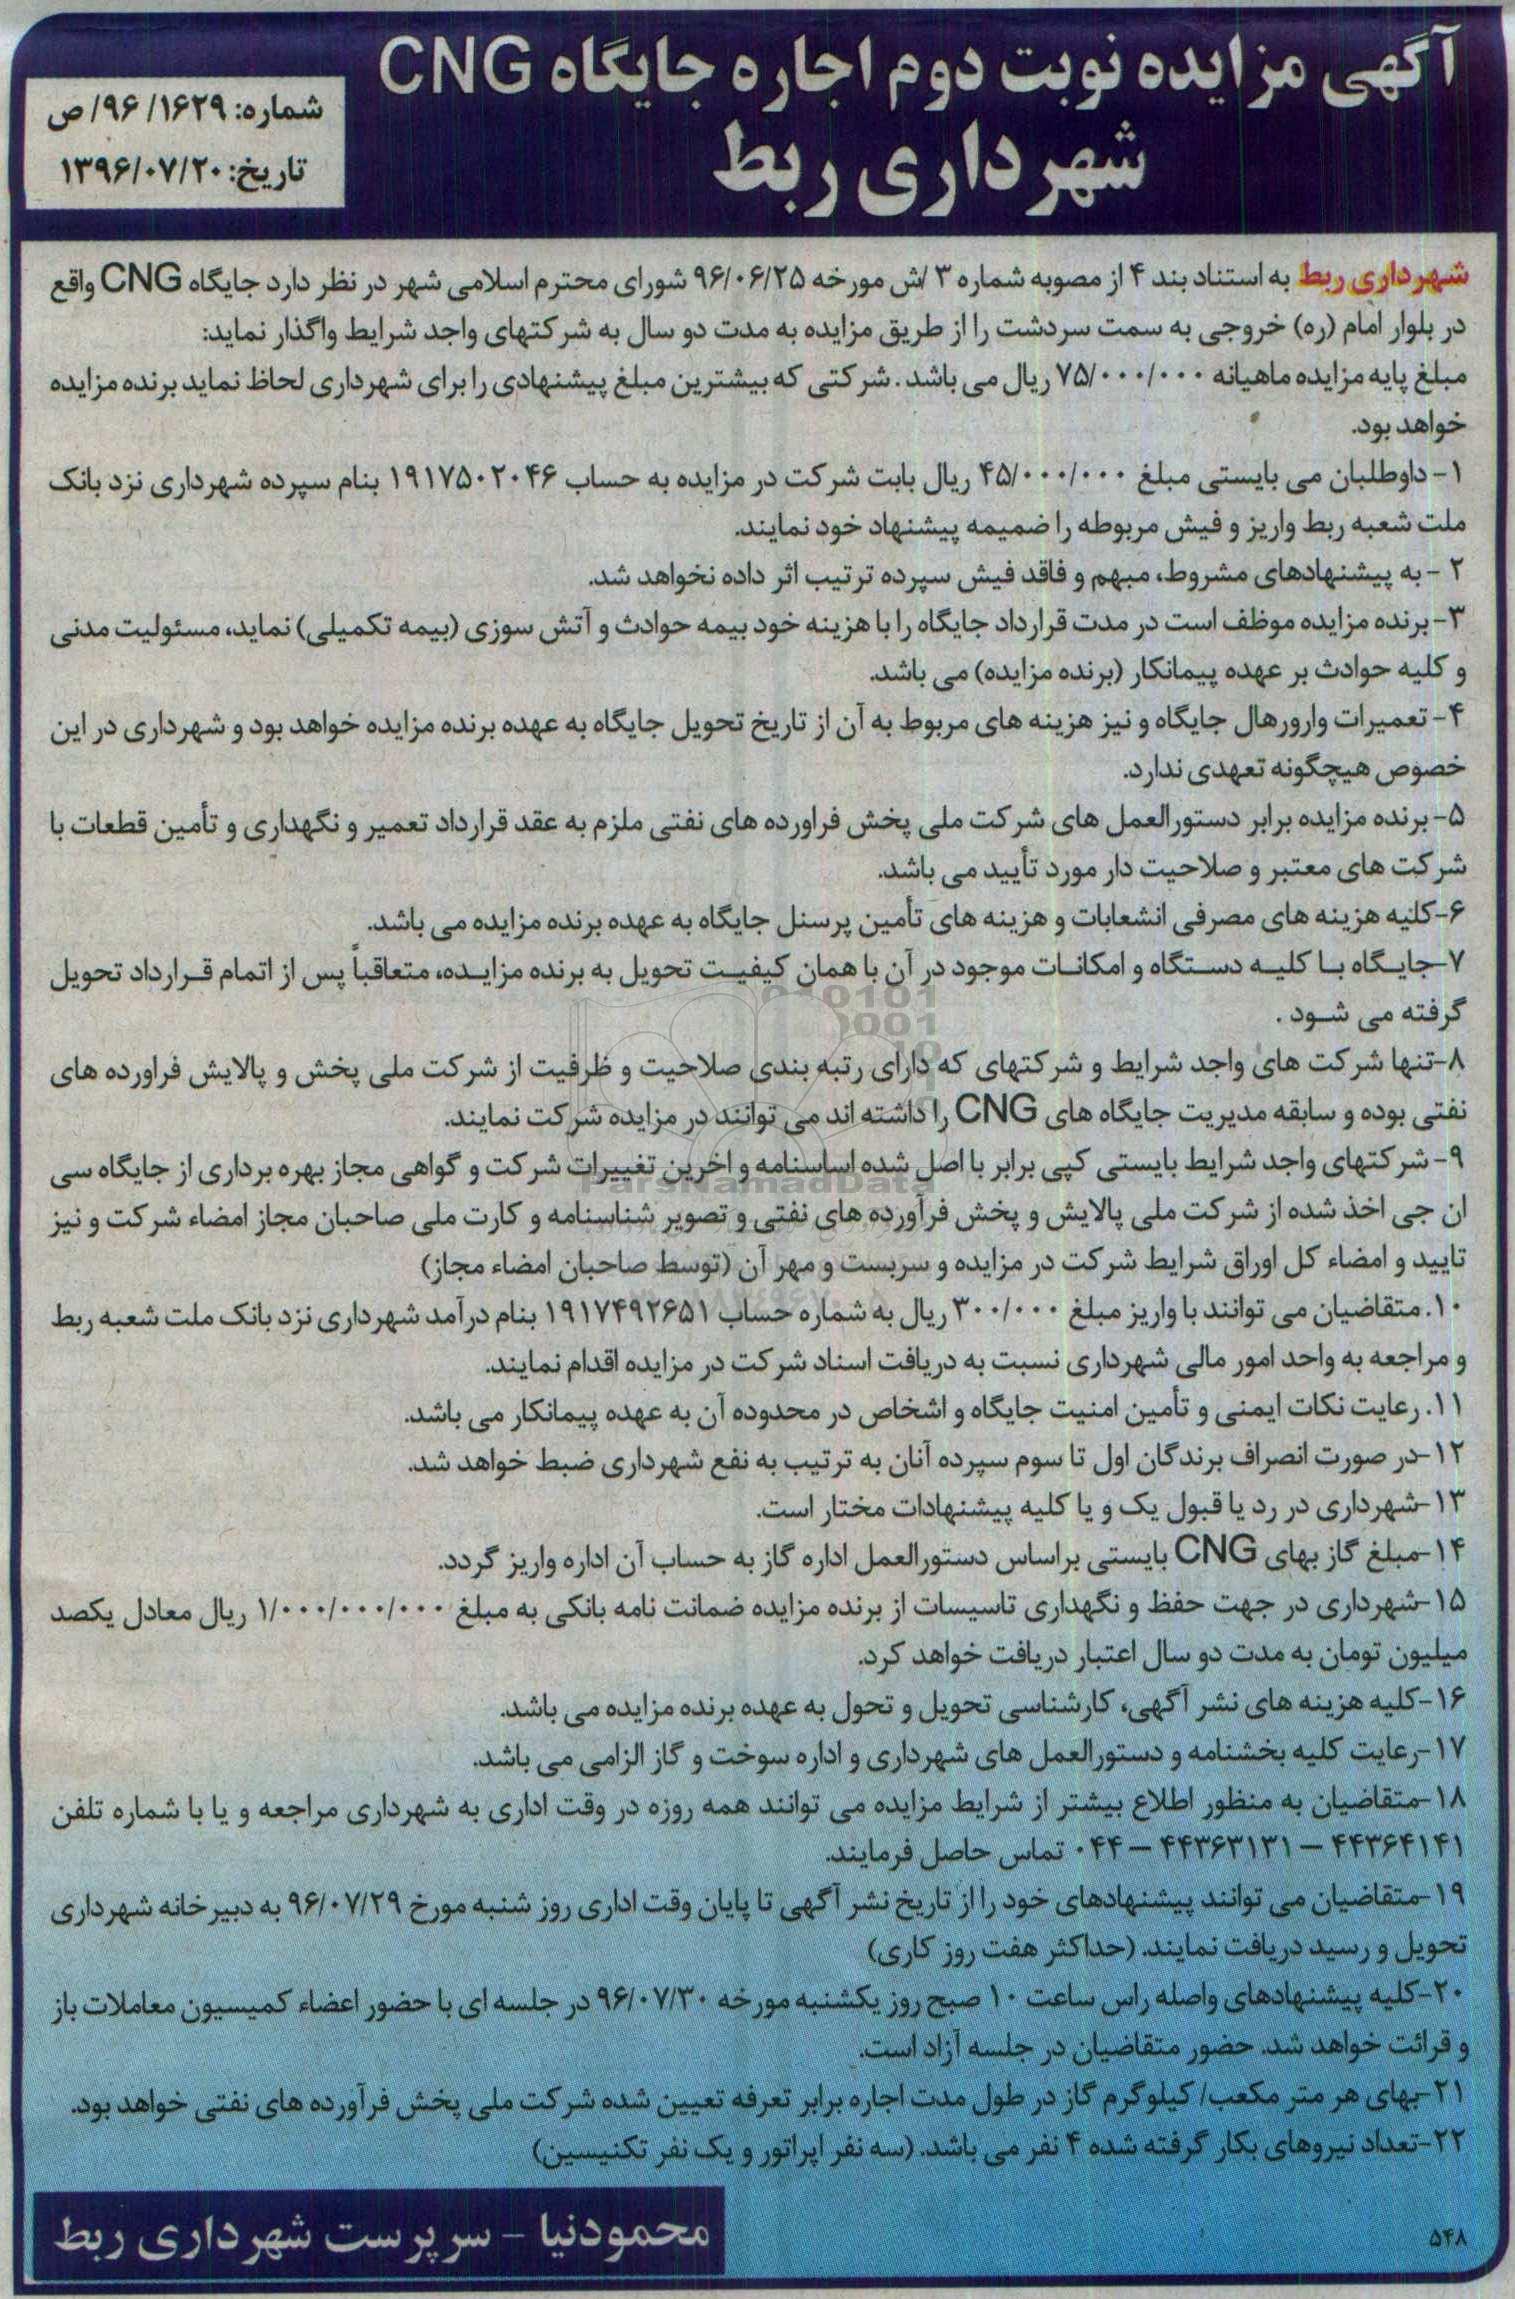 آگهی مزایده نوبت دوم اجاره جایگاه CNG
شهرداری ربط
شماره: ۱۶۲۹/ ۹۶/ ص
تاریخ: ۱۳۹۶/۰۷/۲۰
شهرداری ربط به استناد بند ۴ از مصوبه شماره ۳ /ش مورخه ۹۶/۰۶/۲۵ شورای محترم اسلامی شهر در نظر دارد جایگاه CNG واقع
در بلوار امام (ره) خروجی به سمت سردشت را از طریق مزایده به مدت دو سال به شرکتهای واجد شرایط واگذار نماید:
مبلغ پایه مزایده ماهیانه ۷۵/۰۰۰/۰۰۰ ریال می باشد. شرکتی که بیشترین مبلغ پیشنهادی را برای شهرداری لحاظ نماید برنده مزایده
خواهد بود.
۱- داوطلبان می بایستی مبلغ ۴۵/۰۰۰/۰۰۰ ریال بابت شرکت در مزایده به حساب ۱۹۱۷۵۰۲۰۴۶ بنام سپرده شهرداری نزد بانک
ملت شعبه ربط واریز و فیش مربوطه را ضمیمه پیشنهاد خود نمایند.
۲ - به پیشنهادهای مشروط، مبهم و فاقد فیش سپرده ترتیب اثر داده نخواهد شد.
۳- برنده مزایده موظف است در مدت قرارداد جایگاه را با هزینه خود بیمه حوادث و آتش سوزی (بیمه تکمیلی) نماید، مسئولیت مدنی
و کلیه حوادث بر عهده پیمانکار (برنده مزایده) می باشد.
۴- تعمیرات وارورهال جایگاه و نیز هزینه های مربوط به آن از تاریخ تحویل جایگاه به عهده برنده مزایده خواهد بود و شهرداری در این
خصوص هیچگونه تعهدی ندارد.
۵- برنده مزایده برابر دستورالعمل های شرکت ملی پخش فراورده های نفتی ملزم به عقد قرارداد تعمیر و نگهداری و تأمین قطعات با
شرکت های معتبر و صلاحیت دار مورد تأیید می باشد.
۶-کلیه هزینه های مصرفی انشعابات و هزینه های تأمین پرسنل جایگاه به عهده برنده مزایده می باشد.
۷-جایگاه با کلیه دستگاه و امکانات موجود در آن با همان کیفیت تحویل به برنده مزایده، متعاقباً پس از اتمام قرارداد تحویل
گرفته می شود .
۸-تنها شرکت های واجد شرایط و شرکتهای که دارای رتبه بندی صلاحیت و ظرفیت از شرکت ملی پخش و پالایش فراورده های
نفتی بوده و سابقه مدیریت جایگاه های CNG را داشته اند می توانند در مزایده شرکت نمایند.
۹- شرکتهای واجد شرایط بایستی کپی برابر با اصل شده اساسنامه و اخرین تغییرات شرکت و گواهی مجاز بهره برداری از جایگاه سی
ان جی اخذ شده از شرکت ملی پالایش و پخش فرآورده های نفتی و تصویر شناسنامه و کارت ملی صاحبان مجاز امضاء شرکت و نیز
تایید و امضاء کل اوراق شرایط شرکت در مزایده و سربست و مهر آن (توسط صاحبان امضاء مجاز)
۱۰. متقاضیان می توانند با واریز مبلغ ۳۰۰/۰۰۰ ریال به شماره حساب ۱۹۱۷۴۹۲۶۵۱ بنام درآمد شهرداری نزد بانک ملت شعبه ربط
و مراجعه به واحد امور مالی شهرداری نسبت به دریافت اسناد شرکت در مزایده اقدام نمایند.
۱۱. رعایت نکات ایمنی و تأمین امنیت جایگاه و اشخاص در محدوده آن به عهده پیمانکار می باشد.
۱۲-در صورت انصراف برندگان اول تا سوم سپرده آنان به ترتیب به نفع شهرداری ضبط خواهد شد.
۱۳-شهرداری در رد یا قبول یک و یا کلیه پیشنهادات مختار است.
۱۴-مبلغ گاز بهای CNG بایستی براساس دستورالعمل اداره گاز به حساب آن اداره واریز گردد.
۱۵-شهرداری در جهت حفظ و نگهداری تاسیسات از برنده مزایده ضمانت نامه بانکی به مبلغ ۱/۰۰۰/۰۰۰/۰۰۰ ریال معادل یکصد
میلیون تومان به مدت دو سال اعتبار دریافت خواهد کرد.
۱۶-کلیه هزینه های نشر آگهی، کارشناسی تحویل و تحول به عهده برنده مزایده می باشد.
۱۷-رعایت کلیه بخشنامه و دستورالعمل های شهرداری و اداره سوخت و گاز الزامی می باشد.
۱۸-متقاضیان به منظور اطلاع بیشتر از شرایط مزایده می توانند همه روزه در وقت اداری به شهرداری مراجعه و یا با شماره تلفن
۴۴۳۶۴۱۴۱ – ۴۴۳۶۳۱۳۱ – ۰۴۴ تماس حاصل فرمایند.
۱۹-متقاضیان می توانند پیشنهادهای خود را از تاریخ نشر آگهی تا پایان وقت اداری روز شنبه مورخ ۹۶/۰۷/۲۹ به دبیرخانه شهرداری
تحویل و رسید دریافت نمایند. (حداکثر هفت روز کاری)
۲۰-کلیه پیشنهادهای واصله راس ساعت ۱۰ صبح روز یکشنبه مورخه ۹۶/۰۷/۳۰ در جلسه ای با حضور اعضاء کمیسیون معاملات باز
و قرائت خواهد شد. حضور متقاضیان در جلسه آزاد است.
۲۱-بهای هر متر مکعب/ کیلوگرم گاز در طول مدت اجاره برابر تعرفه تعیین شده شرکت ملی پخش فرآورده های نفتی خواهد بود.
۲۲-تعداد نیروهای بکار گرفته شده ۴ نفر می باشد. (سه نفر اپراتور و یک نفر تکنیسین)
محمودنیا - سرپرست شهرداری ربط
۵۴۸
ParsNamadData